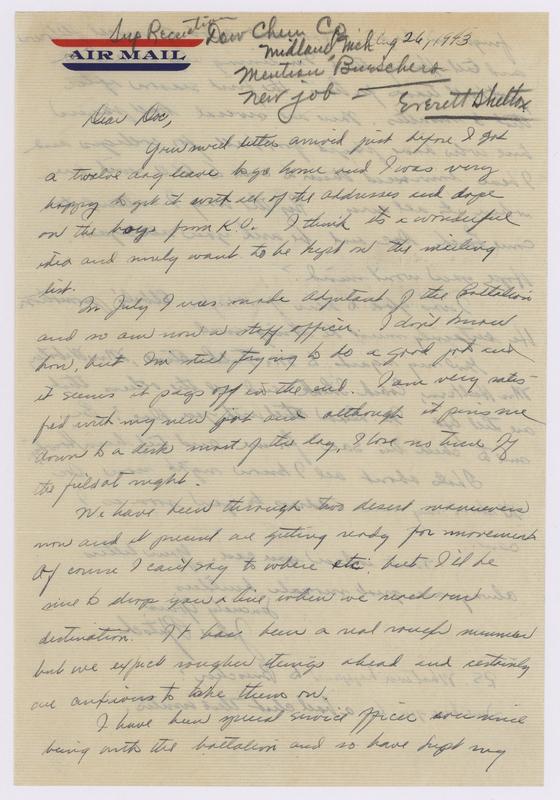 Sup Recreation Dow Chem Co
Midland Mich Aug 26, 1943
AIR MAIL
Mention Bueschers
new job =
Everett Shelton
Dear Doc,
Your sweet letter arrived just before I got
a twelve day leave to go home and I was very
happy to get it with all of the addresses and dope
on the boys from K.U. I think its a wonderful
idea and surely want to be kept on the mailing
list.
In July I was made Adjutant of the Battalion
and so am now a staff officer. I don't know
how, but I'm still trying to do a good job and
it seems it pays off in the end. I am very satis-
fied with my new job and although it pens me
down to a desk most of the day, I love no time
the field at night.
We have been through two desert maneuvers
now and at present are getting ready for movement
Of course I can't say to where etc. but I'll be
sure to drop you a line when we reach our
destination. It has been a real rough summer
but we expect rougher things ahead and certainly
are anxious to take them on.
I have been special service officer ever since
being with the battalion and so have kept my